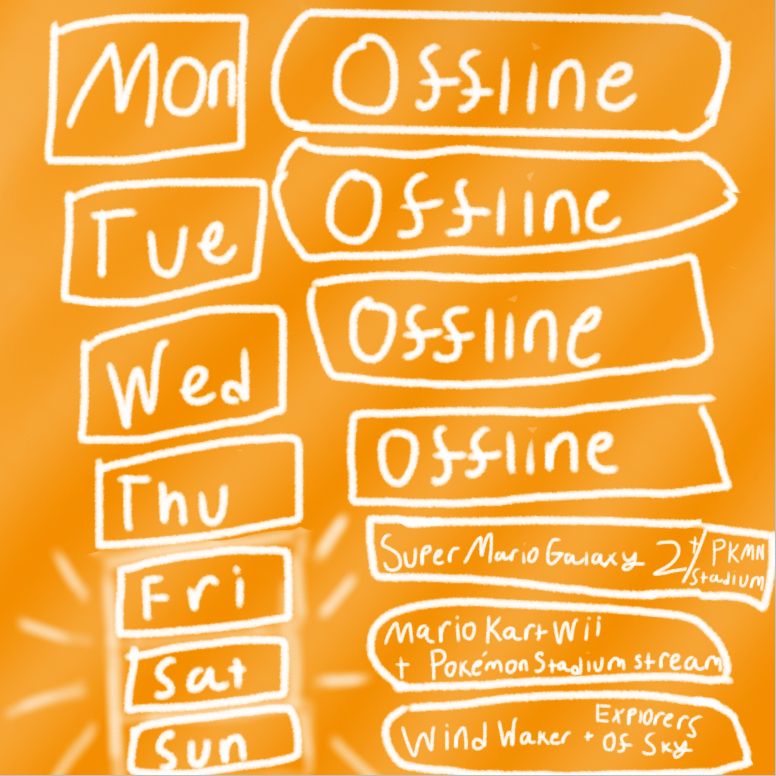 Mon Offline
Tue Offline
Wed Offline
Thu Offline
Fri Super Mario Galaxy 2 + PKMN
Stadium
Sat Mario Kart Wii
+ Pokémon Stadium stream
Sun Wind Waker + Explorers
Of Sky